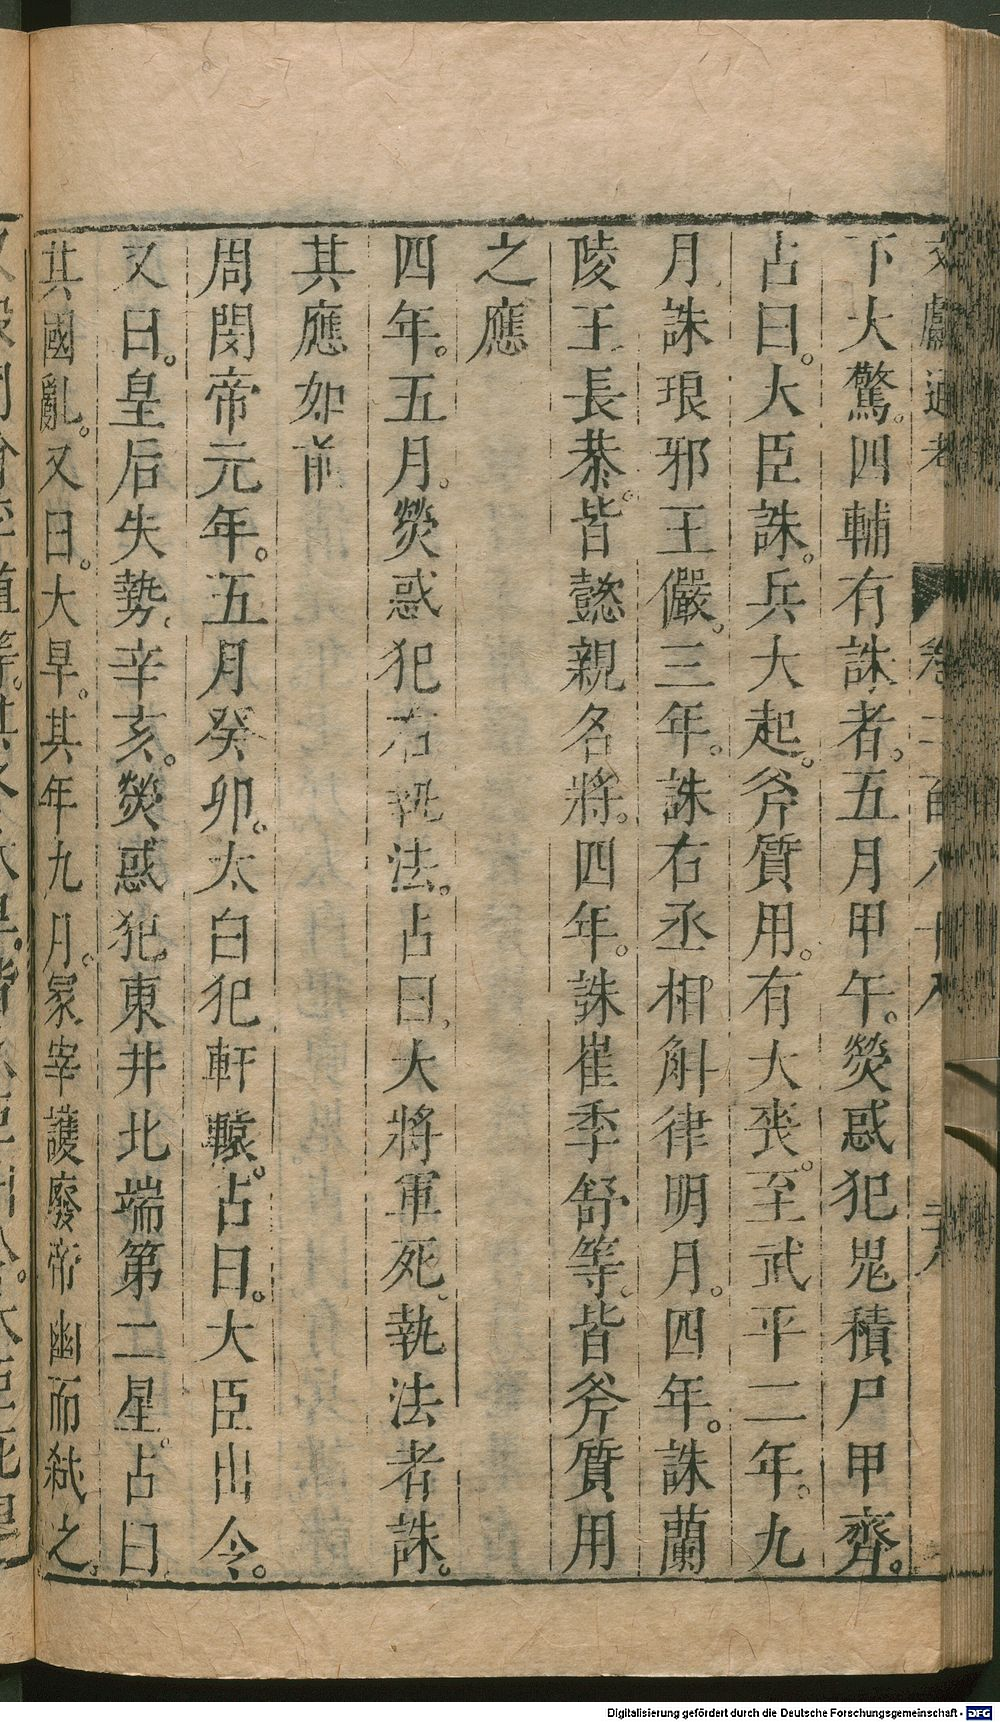 文獻通考 卷二百八十八
下大驚。四輔有誅者。五月甲午。熒惑犯鬼積尸甲齊。
占曰。大臣誅。兵大起。斧質用。有大喪。至武平二年。九
月誅琅邪王儼。三年。誅右丞相斛律明月。四年。誅蘭
陵王長恭。皆懿親名將。四年。誅崔季舒等。皆斧質用
之應
四年。五月。熒惑犯右執法。占曰。大將軍死。執法者誅。
其應如前
周閔帝元年。五月癸卯。太白犯軒轅。占曰。大臣出令。
又曰。皇后失勢。辛亥。熒惑犯東井北端第二星。占曰
其國亂。又曰。大旱。其年九月。冢宰護廢帝幽而弒之。
Digitalisierung gefördert durch die Deutsche Forschungsgemeinschaft - DFG